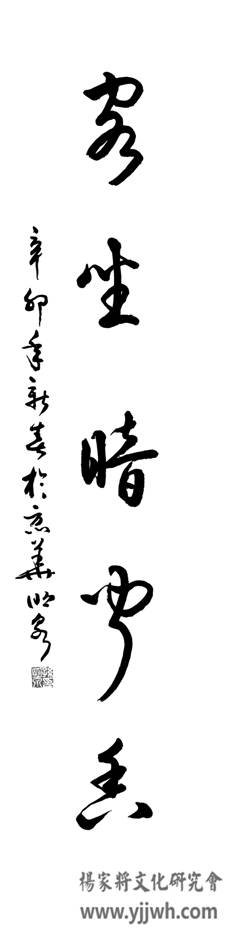 客坐暗闻香
辛卯年新春於京華明客
楊家將文化研究會
www.yjjwh.com